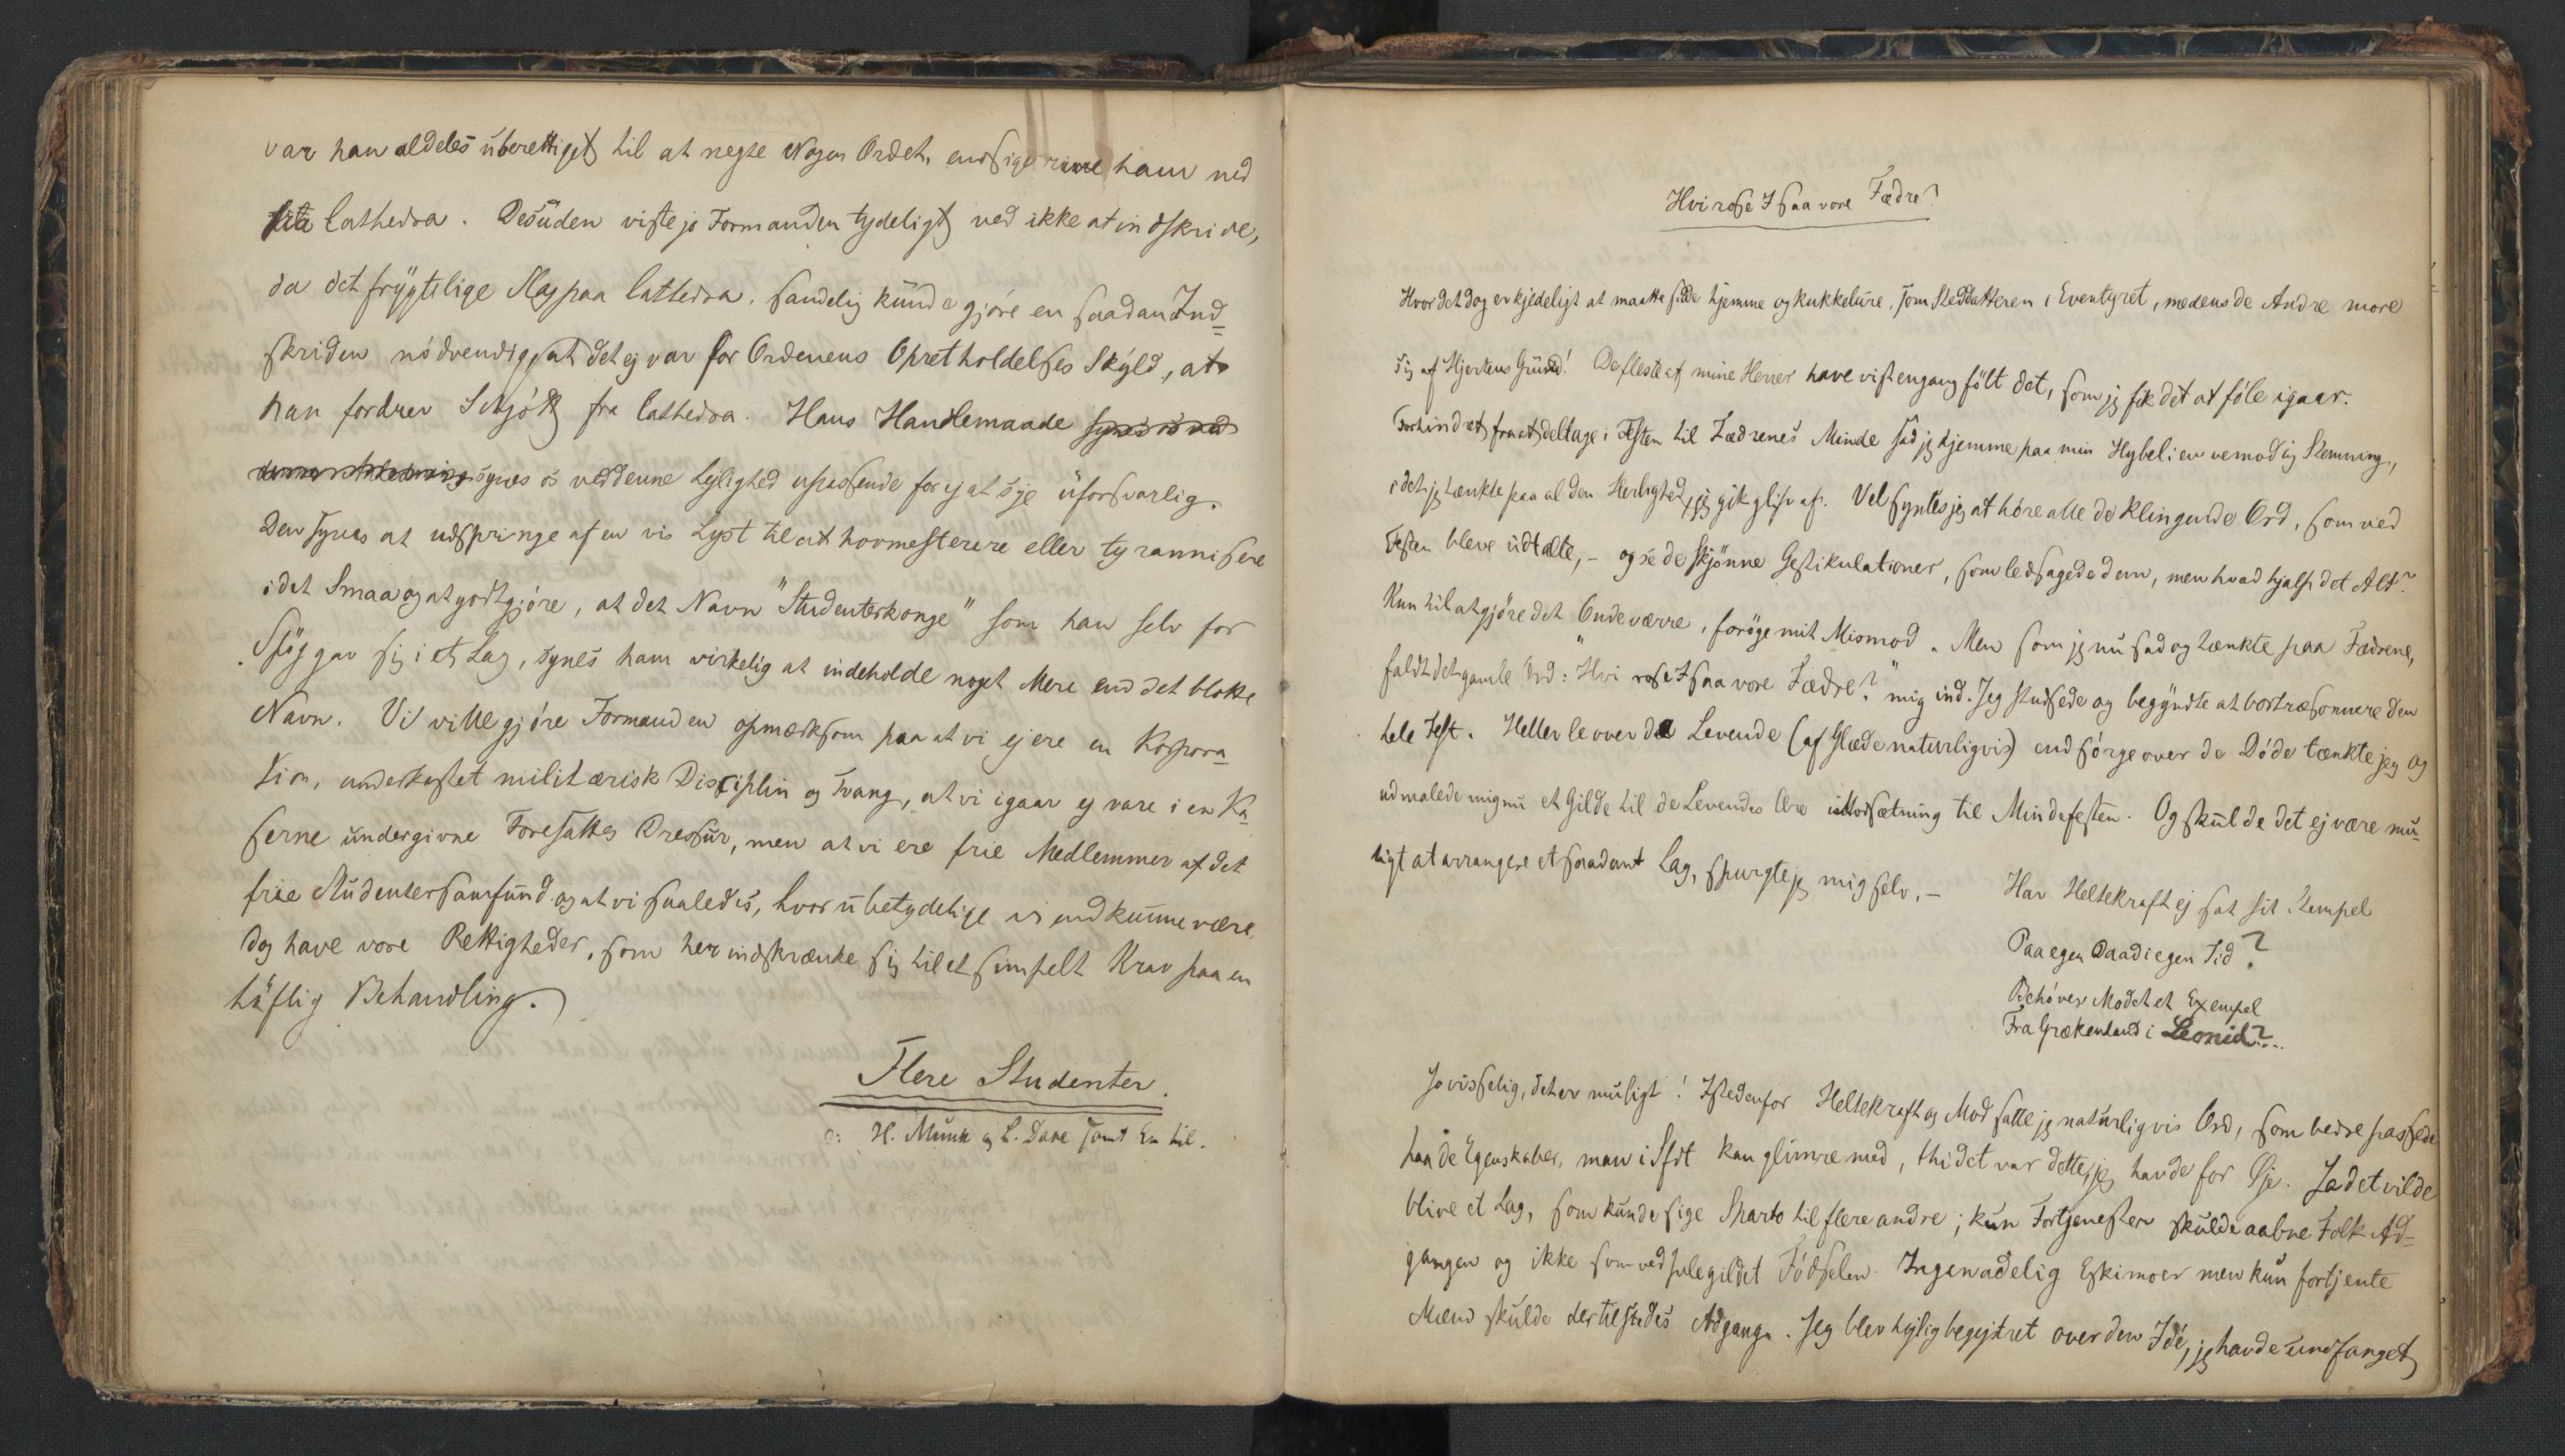 var han aldeles uberettiget til at negte Nogen Ordet, endsige rive ham ned
fra Cathedra. Desuden viste jo Formanden tydeligt ved ikke at indskride,
da det frygtelige Slag paa Cathedra, sandelig kunde gjøre en saadan Ind=
skriden nødvendig, at det ej var for Ordenens Opretholdelses Skyld, at
han fordrev Schjøtt fra Cathedra. Hans Handlemaade synes os ved
denne Anledning synes os ved denne Lejlighed upassende for ej at sige uforsvarlig.
Den synes at udspringe af en vis Lyst til at hovmesterere eller tyrannisere
i det Smaa og at godtgjøre, at det Navn "Studenterkonge" som han selv for
Spøg gav sig i et Lag, synes ham virkelig at indeholde noget Mere end det blotte
Navn. Vi ville gjøre Formanden opmærksom paa at vi ej ere en Korpora=
tion, underkastet militærisk Disciplin og Tvang, at vi igaar ej vare i en Ka=
serne undergivne Foresattes Dressur, men at vi ere frie Medlemmer af det
frie Studentersamfund og at vi saaledes, hvor ubetydelige vi end kunne være,
dog have vore Rettigheder, som her indskrænke sig til et simpelt Krav paa en
høflig Behandling.
Flere Studenter.
ɔ: H. Munk og C. Dave samt En til.
Hvi rose I saa vore Fædre?
Hvor det dog er kjedeligt at maatte sidde hjemme og kukkelure, som Steddatteren i Eventyret, medens de Andre more
sig af Hjertens Grund! De fleste af mine Herrer have vist engang følt det, som jeg fik det at føle igaar.
Forhindret fra at deltage i Festen til Fædrenes Minde sad jeg hjemme paa min Hybel i en vemodig Stemning,
idet jeg tænkte paa al den Herlighed, jeg gik glip af. Vel syntes jeg at høre alle de klingende Ord, som ved
Festen bleve udtalte, - og se de skjønne Gestikulationer, som ledsagede dem, men hvad hjalp det Alt?
Kun til at gjøre det Onde værre, forøge mit Mismod. Men som jeg nu sad og tænkte paa Fædrene,
faldt det gamle Ord: "Hvi rose I saa vore Fædre?" mig ind. Jeg studsede og begyndte at bortræsonnere den
hele Fest. Heller le over de Levende (af Glæde naturligvis) end sørge over de Døde tænkte jeg og
udmalede mig nu et Gilde til de Levendes Ære i Modsætning til Mindefesten. Og skulde det ej være mu=
ligt at arrangere et saadant Lag, spurgte jeg mig selv, -
Har Heltekraft ej sat sit Stempel
Paa egen Daad i egen Tid?
Behøver Modet et Exempel
Fra Grækenland i Leonid?...
Jo visselig, det er muligt! Istedenfor Heltekraft og Mod satte jeg naturligvis Ord, som bedre passede
paa de Egenskaber, man i Sfdt kan glimre med, thi det var dette, jeg havde for Øje. Ja det vilde
blive et Lag, som kunde sige Sparto til flere andre; kun Fortjenesten skulde aabne Folk Ad=
gangen og ikke som ved Julegildet Fødselen. Ingen adelig Eskimoer men kun fortjente
Mænd skulde der tilstedes Adgang. Jeg blev hejlig begejstret over den Idé, jeg havde undfanget